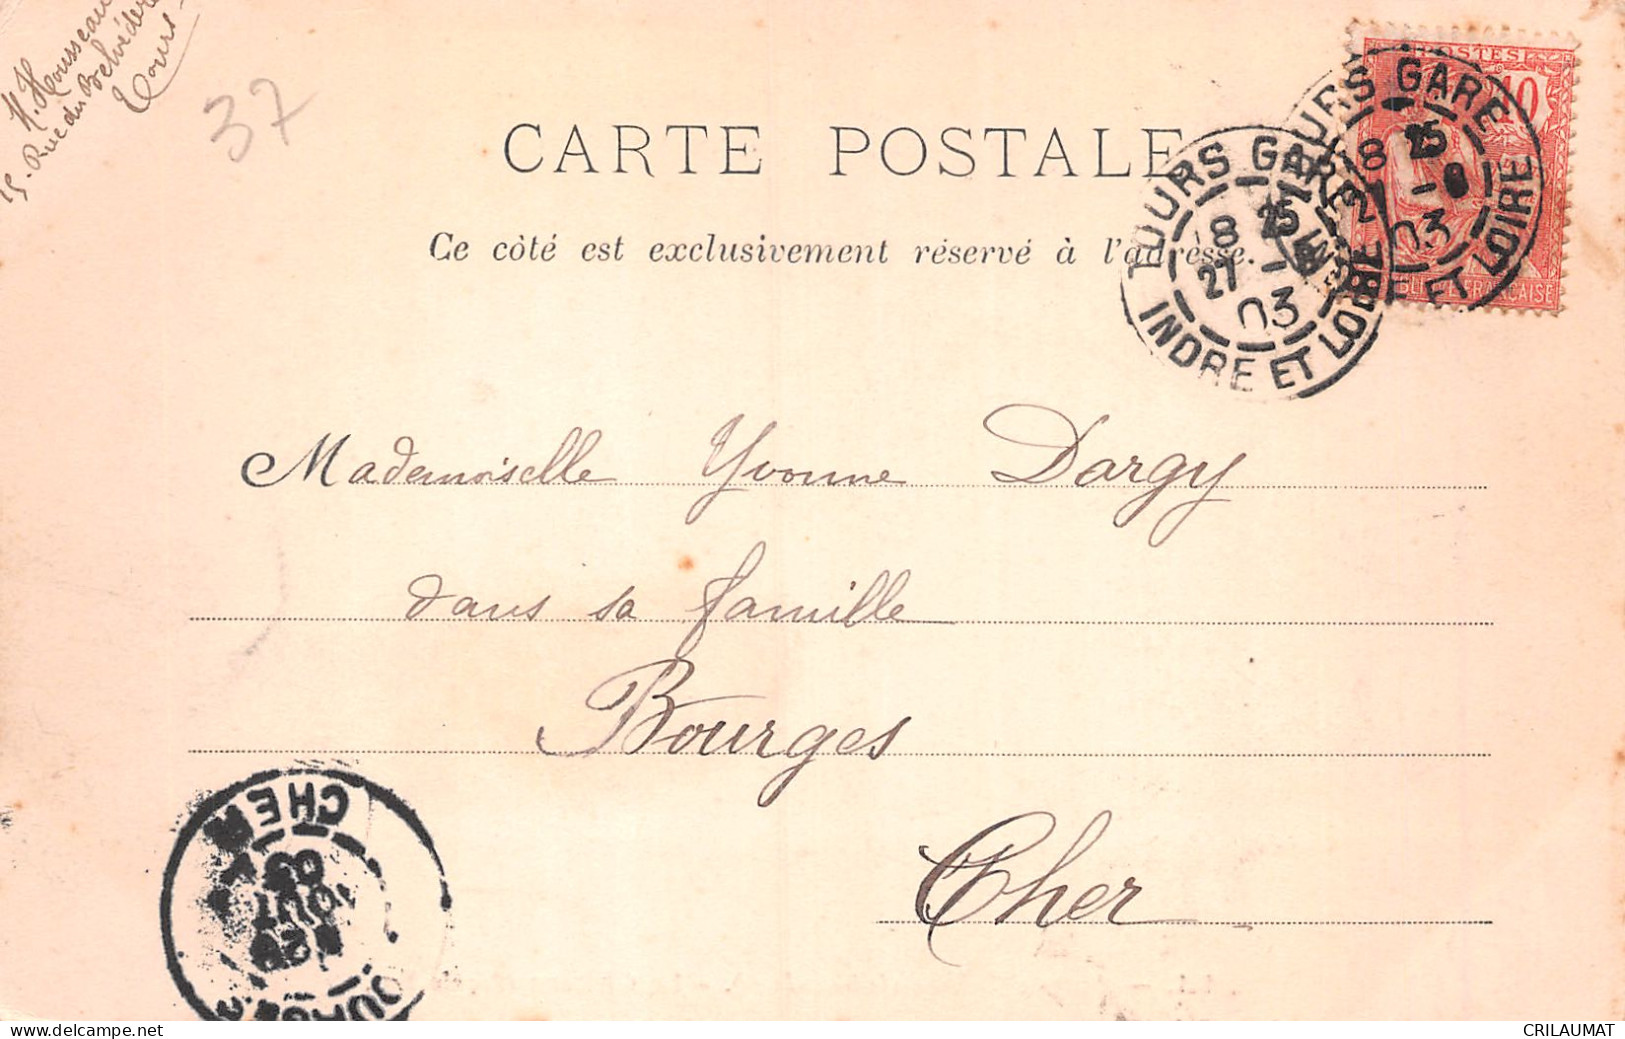 H. Housseau
15. Rue du Belvédère
Tours
37
CARTE POSTALE
Ce côté est exclusivement réservé à l'adresse.
POSTES
10
RÉPUBLIQUE FRANÇAISE
TOURS GARE
8 25
27 -8
03
INDRE ET LOIRE
TOURS GARE
8 25
27 -8
03
INDRE ET LOIRE
Mademoiselle Yvonne Dargy
dans sa famille
Bourges
Cher
BOURGES
28
AOUT
03
CHER
CRILAUMAT